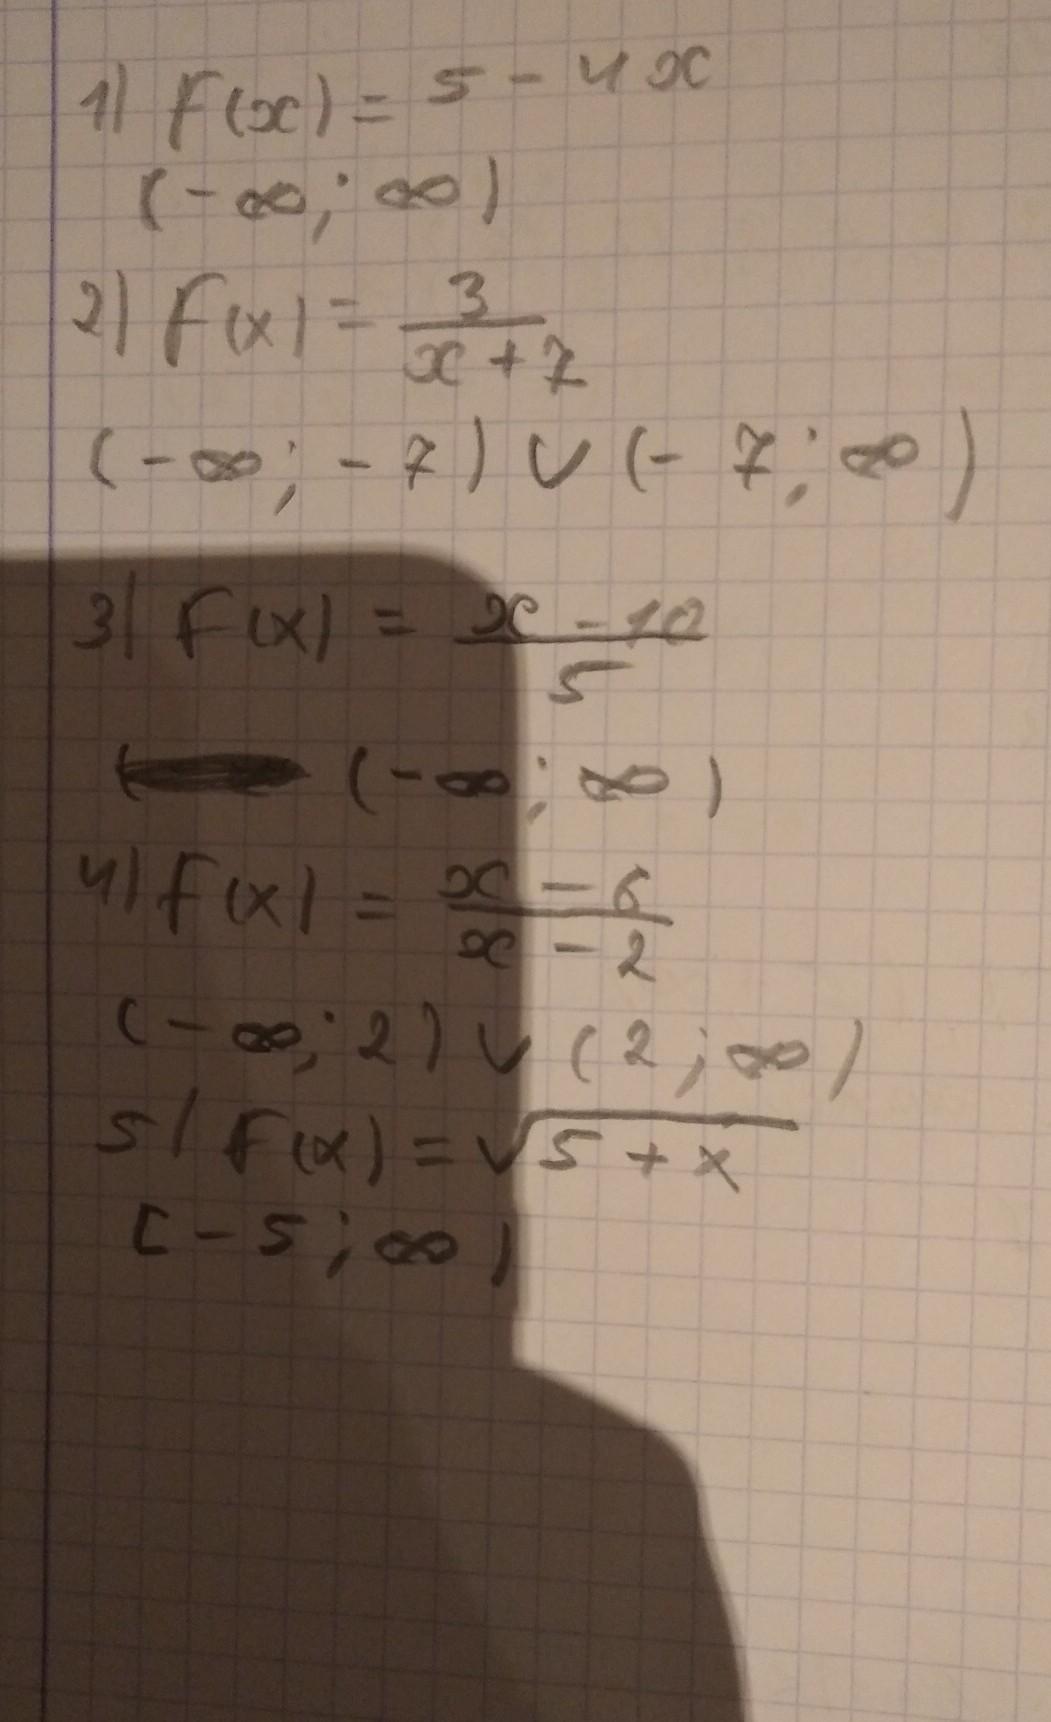 1) F(x) = 5 - 4x
(-∞; ∞)
2) F(x) = 3/(x + 7)
(-∞; -7) ∪ (-7; ∞)
3) F(x) = (x - 10)/5
(-∞; ∞)
4) F(x) = (x - 6)/(x - 2)
(-∞; 2) ∪ (2; ∞)
5) F(x) = √(5 + x)
[-5; ∞)